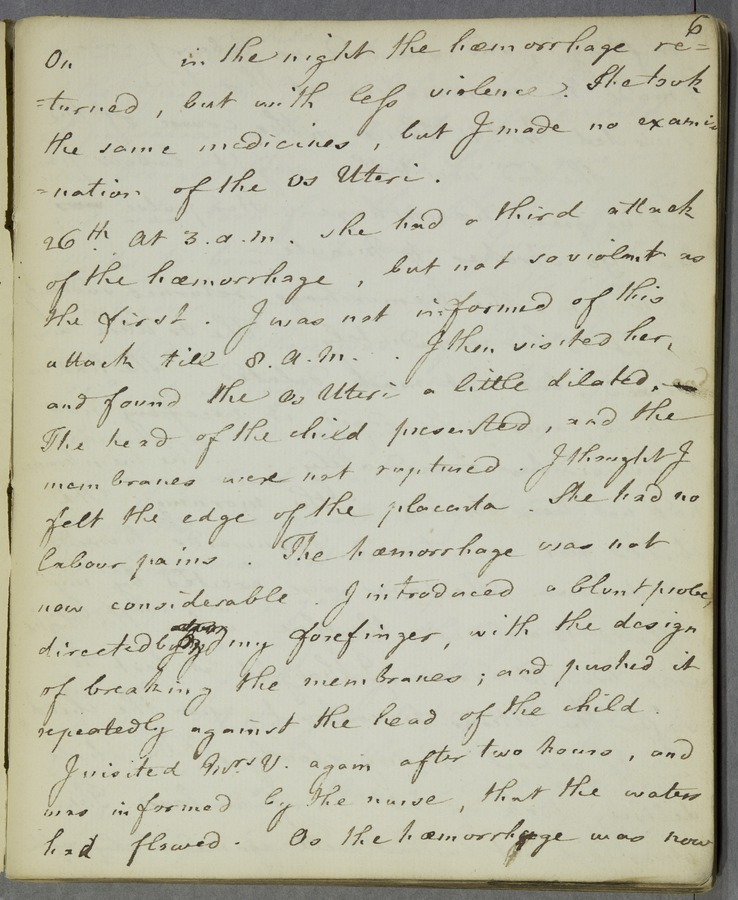 6
On in the night the hæmorrhage re=
=turned, but with less violence. She took
the same medicines, but I made no exami=
=nation of the os Uteri.
26th At 3. a.m. she had a third attack
of the hæmorrhage, but not so violent as
the first. I was not informed of this
attack till 8. a.m. I then visited her,
and found the os Uteri a little dilated.
The head of the child presented, and the
membranes were not ruptured. I thought I
felt the edge of the placenta. She had no
labour pains. The hæmorrhage was not
now considerable. I introduced a blunt probe,
directed by my forefinger, with the design
of breaking the membranes; and pushed it
repeatedly against the head of the child.
I visited Mrs V. again after two hours, and
was informed by the nurse, that the waters
had flowed. As the hæmorrhage was now